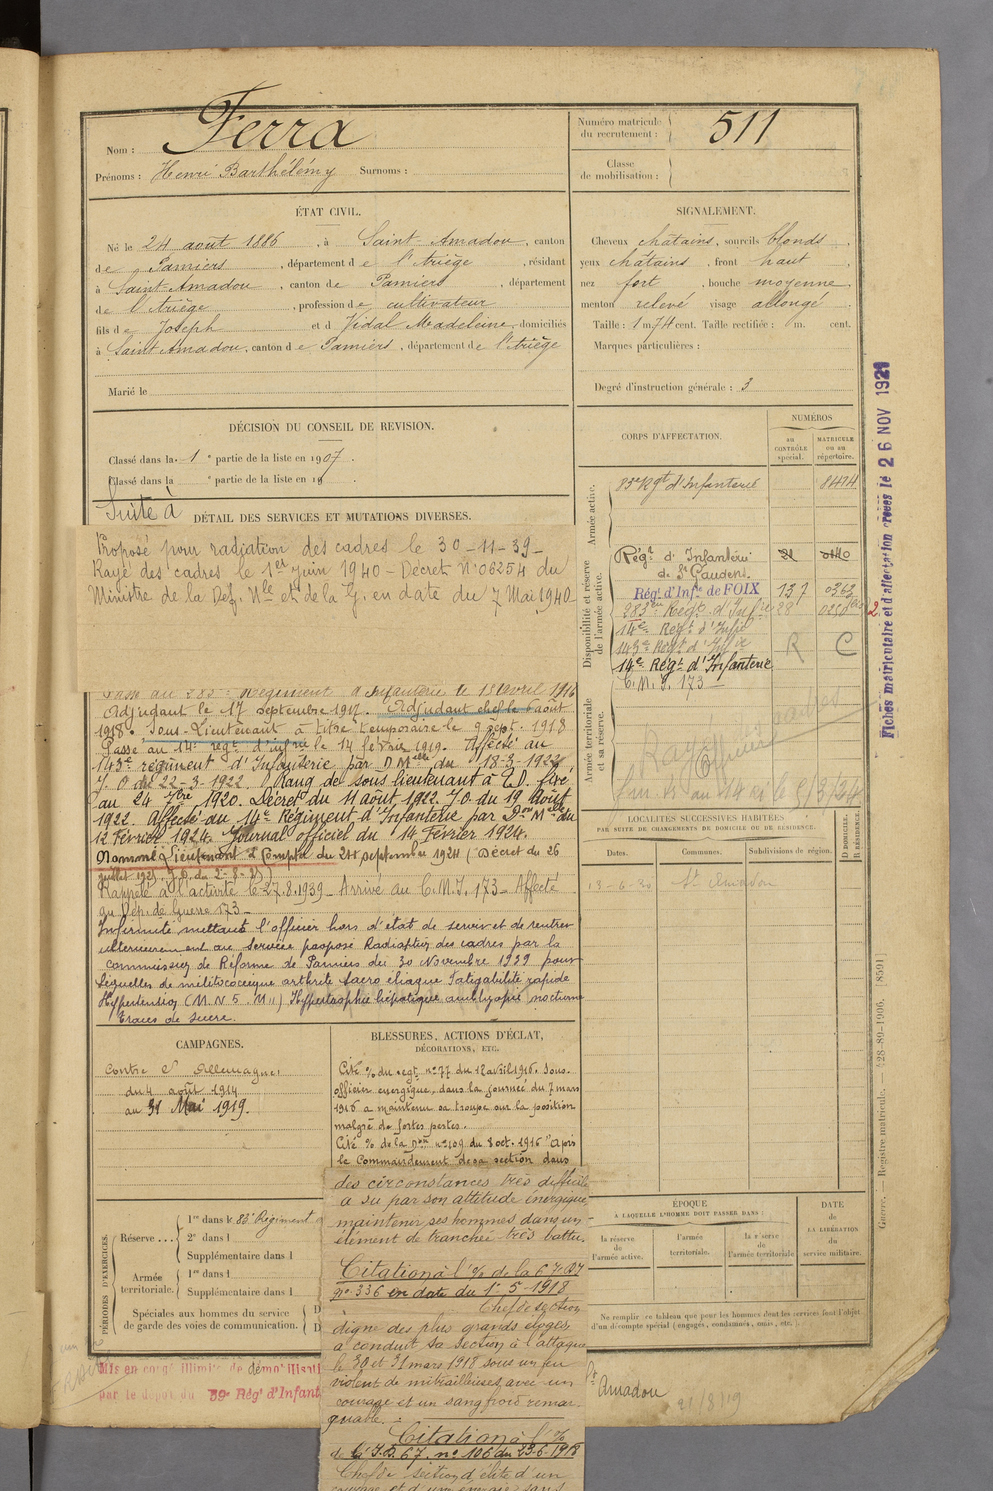 Nom : Ferra
Prénoms : Henri Barthélémy Surnoms :
Numéro matricule du recrutement : 511
Classe de mobilisation :
ÉTAT CIVIL.
Né le 24 août 1886, à Saint-Amadou, canton
de Pamiers, département de l'Ariège, résidant
à Saint-Amadou, canton de Pamiers, département
de l'Ariège, profession de cultivateur
fils de Joseph et d Vidal Madeleine, domiciliés
à Saint Amadou, canton de Pamiers, département de l'Ariège
Marié le
SIGNALEMENT.
Cheveux chatains, sourcils blonds,
yeux chatains, front haut,
nez fort, bouche moyenne,
menton relevé visage allongé
Taille : 1 m. 74 cent. Taille rectifiée : m. cent.
Marques particulières :
Degré d'instruction générale : 3
DÉCISION DU CONSEIL DE REVISION.
Classé dans la 1e partie de la liste en 1907.
Classé dans la e partie de la liste en 19
Suite à
DÉTAIL DES SERVICES ET MUTATIONS DIVERSES.
Proposé pour radiation des cadres le 30-11-39-
Rayé des cadres le 1er Juin 1940 - Décret N°06254 du
Ministre de la Def. Nle et de la G. en date du 7 Mai 1940
Passé au 283e Régiment d'Infanterie le 15 avril 1916
Adjudant le 17 septembre 1917. Adjudant chef le 6 août
1918. Sous-Lieutenant à titre temporaire le 9 sept. 1918
Passé au 14e regt d'infrie le 14 février 1919. Affecté au
143e régiment d'Infanterie par D Melle du 18-3-1922
J. O du 22-3-1922. Rang de sous lieutenant à T.D. fixé
au 24 7bre 1920. Décret du 11 août 1922. J.O. du 19 Août
1922. Affecté au 14e Régiment d'Infanterie par Don Melle du
12 Février 1924. Journal officiel du 14 Février 1924.
Nommé Lieutenant à compter du 24 septembre 1924 (Décret du 26
juillet 1925, J.O. du 2-8-25)
Rappelé à l'activité le 27.8.1939 - Arrivé au C.M.I. 173 - Affecté
au Dép. de Guerre 173 -
Infirmité mettant l'officier hors d'état de servir et de rentrer
ulterieurement au service proposé Radiation des cadres par la
commission de Réforme de Pamiers du 30 Novembre 1939 pour
Séquelles de mélitococcique arthrite sacro iliaque Fatigabilité rapide
Hypertension Hypertrophie hépatique amblyopie nocturne
Traces de sucre.
CORPS D'AFFECTATION.
NUMÉROS
AU CONTRÔLE spécial.
MATRICULE OU AU répertoire.
Armée active.
83e Rgt d'Infanterie 8474
Disponibilité et réserve de l'armée active.
Régt d'Infanterie 21 0140
de St Gaudens
Rég. d'Infie de FOIX 137 0363
283e Regt d'Infie 28
14e Regt d'Infie
143e Regt d'Infie R C
14e Régt d'Infanterie
C.M.I. 173 -
Armée territoriale et sa réserve.
Rayé des cadres
Officier
Fiches matriculaire et d'affectation créées le 26 NOV 1921
LOCALITÉS SUCCESSIVES HABITÉES
PAR SUITE DE CHANGEMENTS DE DOMICILE OU DE RÉSIDENCE.
Dates. Communes. Subdivisions de région. D DOMICILE. R RÉSIDENCE.
13-6-20 St Amadou
CAMPAGNES.
Contre l'Allemagne
du 4 août 1914
au 31 Mai 1919.
BLESSURES, ACTIONS D'ÉCLAT,
DÉCORATIONS, ETC.
Cité % du regt n° 77 du 12 avril 1916. Sous-
officier energique, dans la journée du 7 mars
1916 a maintenu sa troupe sur la position
malgré de fortes pertes.
Cité % de la Don n° 109 du 8 oct. 1916 "Après
le Commandement de sa section dans
des circonstances très difficiles
a su par son attitude énergique
maintenir ses hommes dans un
élément de tranchée très battu.
Citation à l'% de la 67e DI
n°. 336 en date du 1er 5-1918
Chef de section
digne des plus grands éloges,
a conduit sa section à l'attaque
le 30 et 31 mars 1918 sous un feu
violent de mitrailleuses avec un
courage et un sang froid remar
quable. -
Citation à l'%
de l'I.D. 67. n° 106 du 23-6-1918
Chef de section d'élite d'un
PÉRIODES D'EXERCICES.
Réserve ... 1re dans le 83e Régiment
2e dans l
Supplémentaire dans l
Armée territoriale. 1re dans l
Supplémentaire dans l
Spéciales aux hommes du service
de garde des voies de communication.
ÉPOQUE
A LAQUELLE L'HOMME DOIT PASSER DANS :
la réserve de l'armée active.
l'armée territoriale.
la réserve de l'armée territoriale
DATE de LA LIBÉRATION du service militaire.
Ne remplir ce tableau que pour les hommes dont les services font l'objet
d'un décompte spécial (engagés, condamnés, omis, etc.).
Guerre. — Registre matricule. — (28-89-1906. [8591]
Mis en congé illimité de démobilisati
par le dépôt du 59e Rég' d'Infant
St Amadou
21/8/19